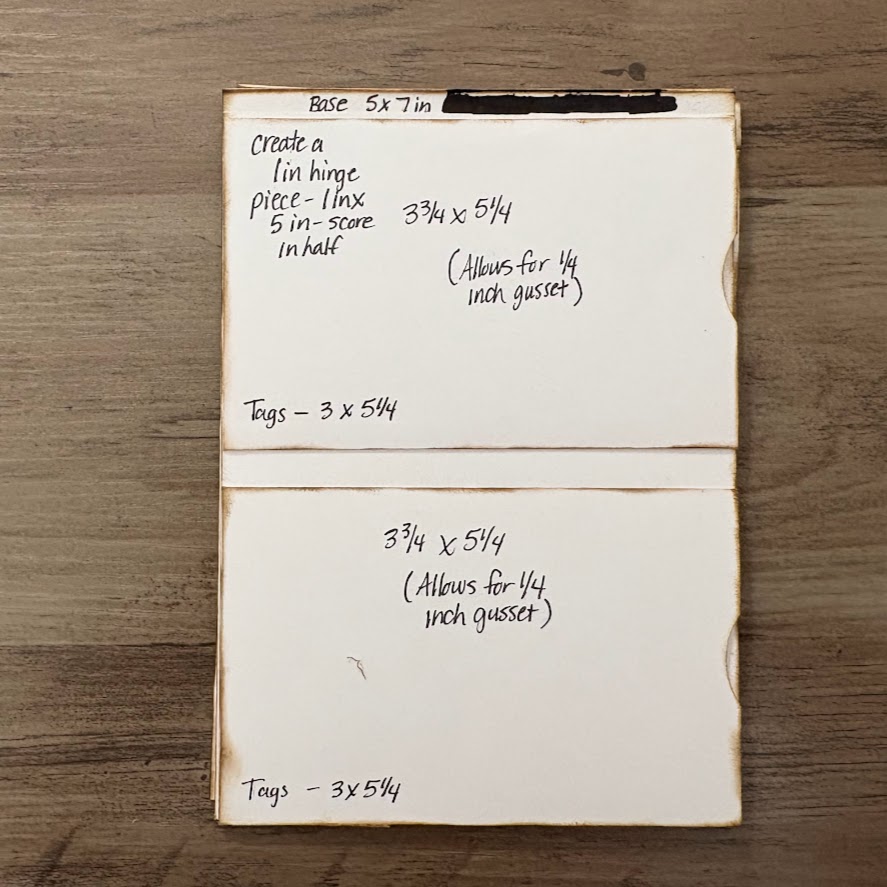 Base 5x7in
Create a
1in hinge
piece - 1inx
5 in - score
in half
3 3/4 x 5 1/4
(Allows for 1/4
inch gusset)
Tags - 3 x 5 1/4
3 3/4 x 5 1/4
(Allows for 1/4
inch gusset)
Tags - 3 x 5 1/4